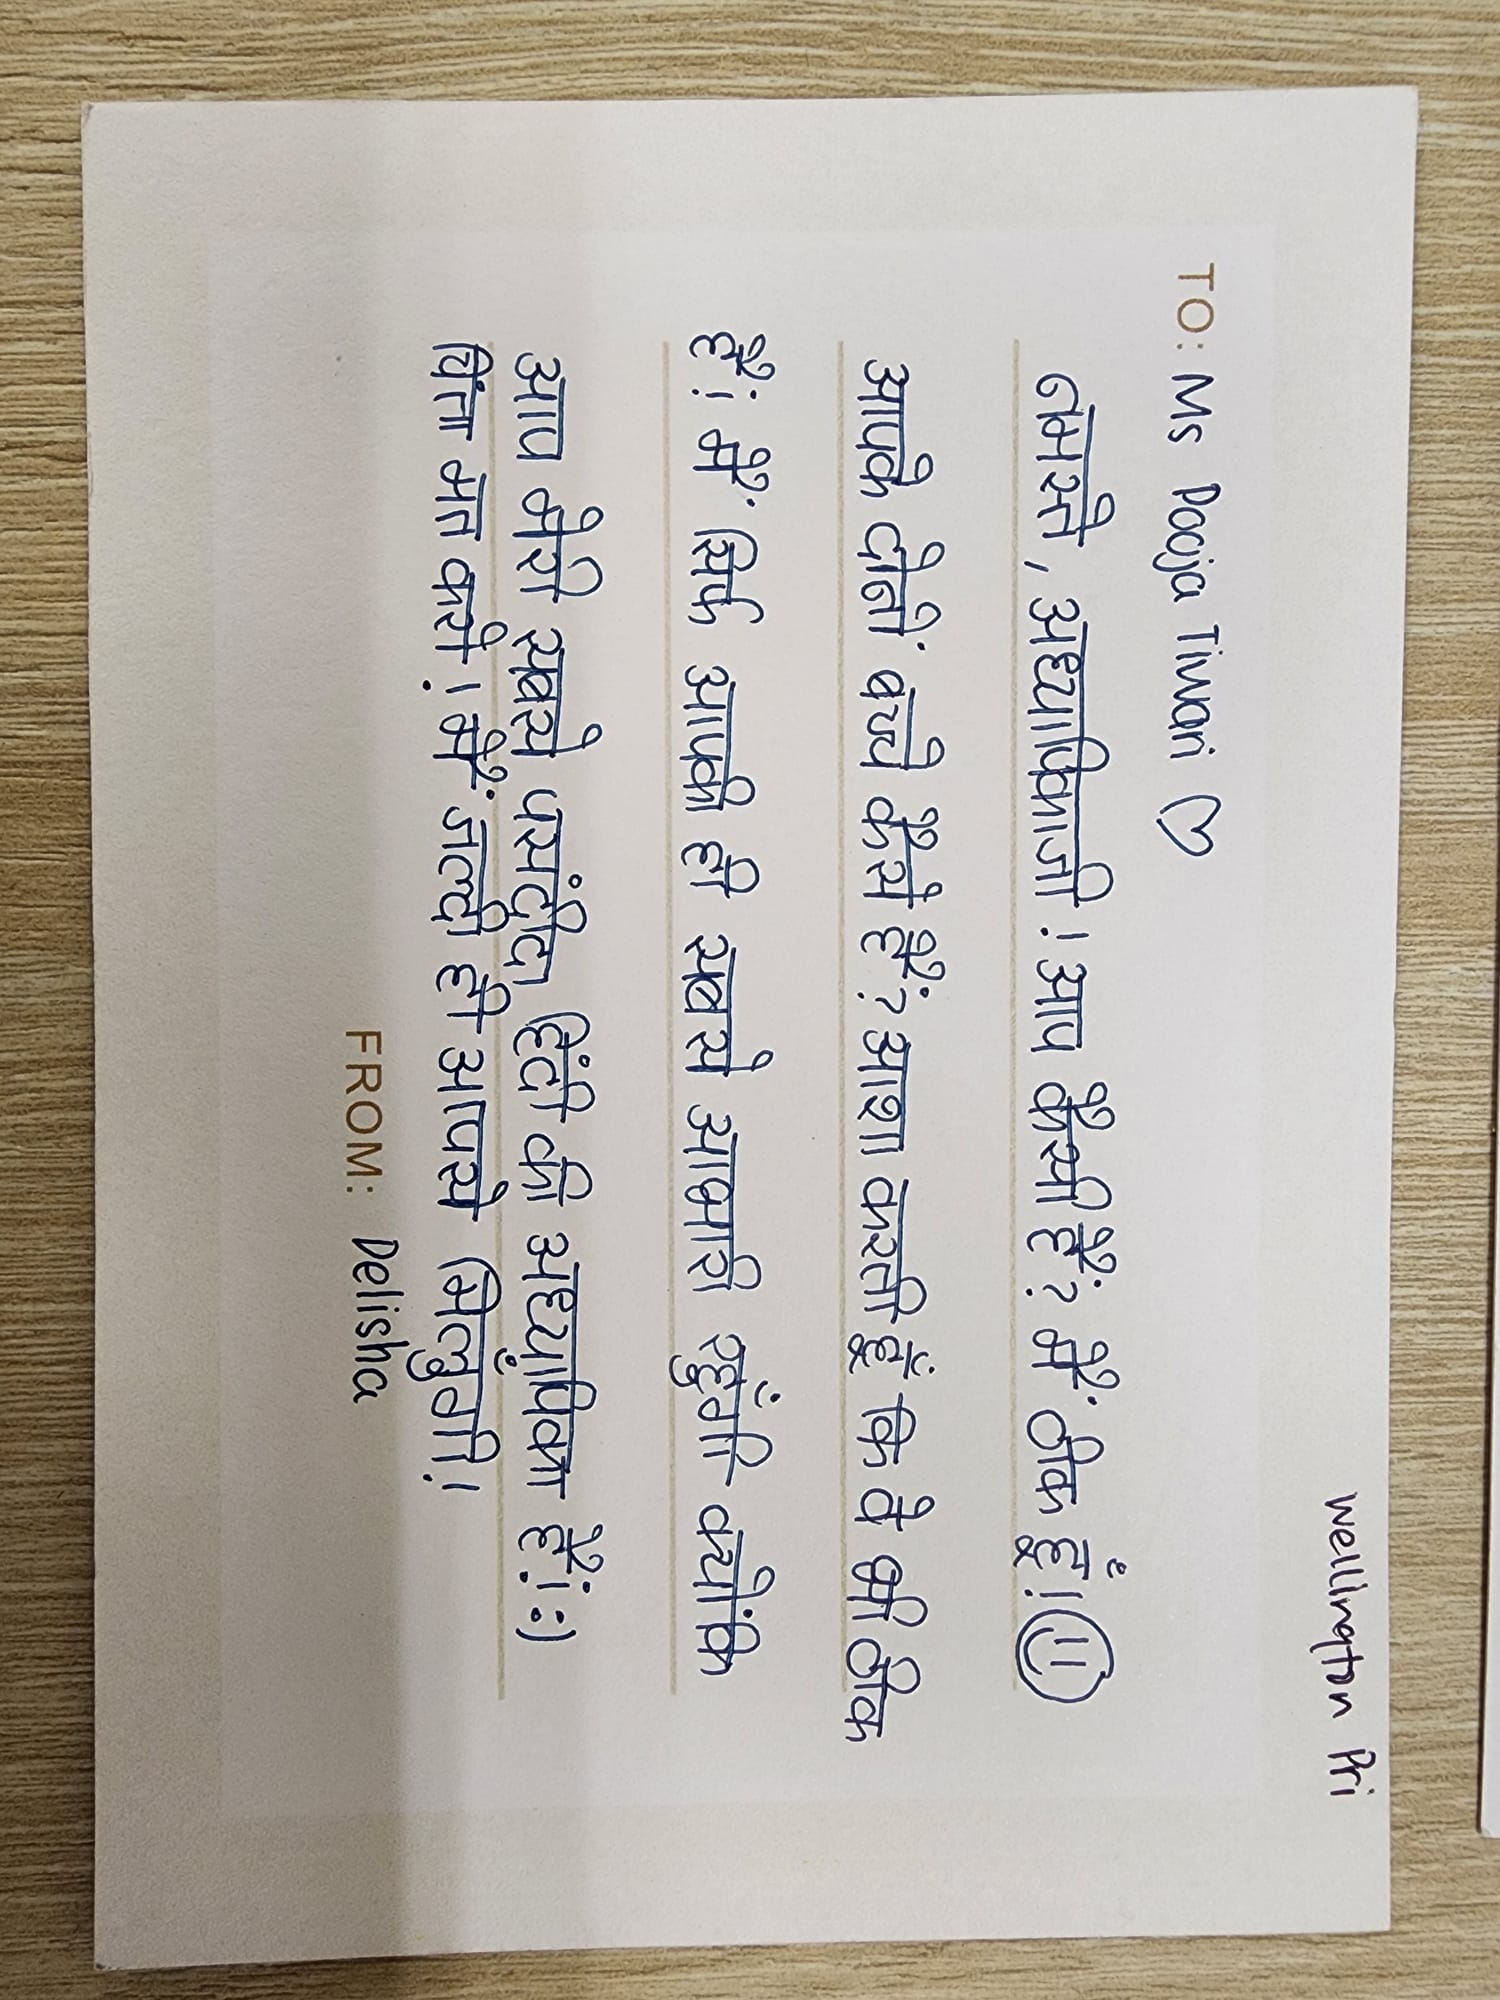 Wellington Pri
TO: Ms Pooja Tiwari ♡
नमस्ते, अध्यापिकाजी! आप कैसी हैं? मैं ठीक हूँ! 🙂
आपके दोनों बच्चे कैसे हैं? आशा करती हूँ कि वे भी ठीक
हैं! मैं सिर्फ आपकी ही सबसे आभारी रहूँगी क्योंकि
आप मेरी सबसे पसंदीदा हिंदी की अध्यापिका हैं! :)
चिंता मत करो! मैं जल्दी ही आपसे मिलूँगी!
FROM: Delisha